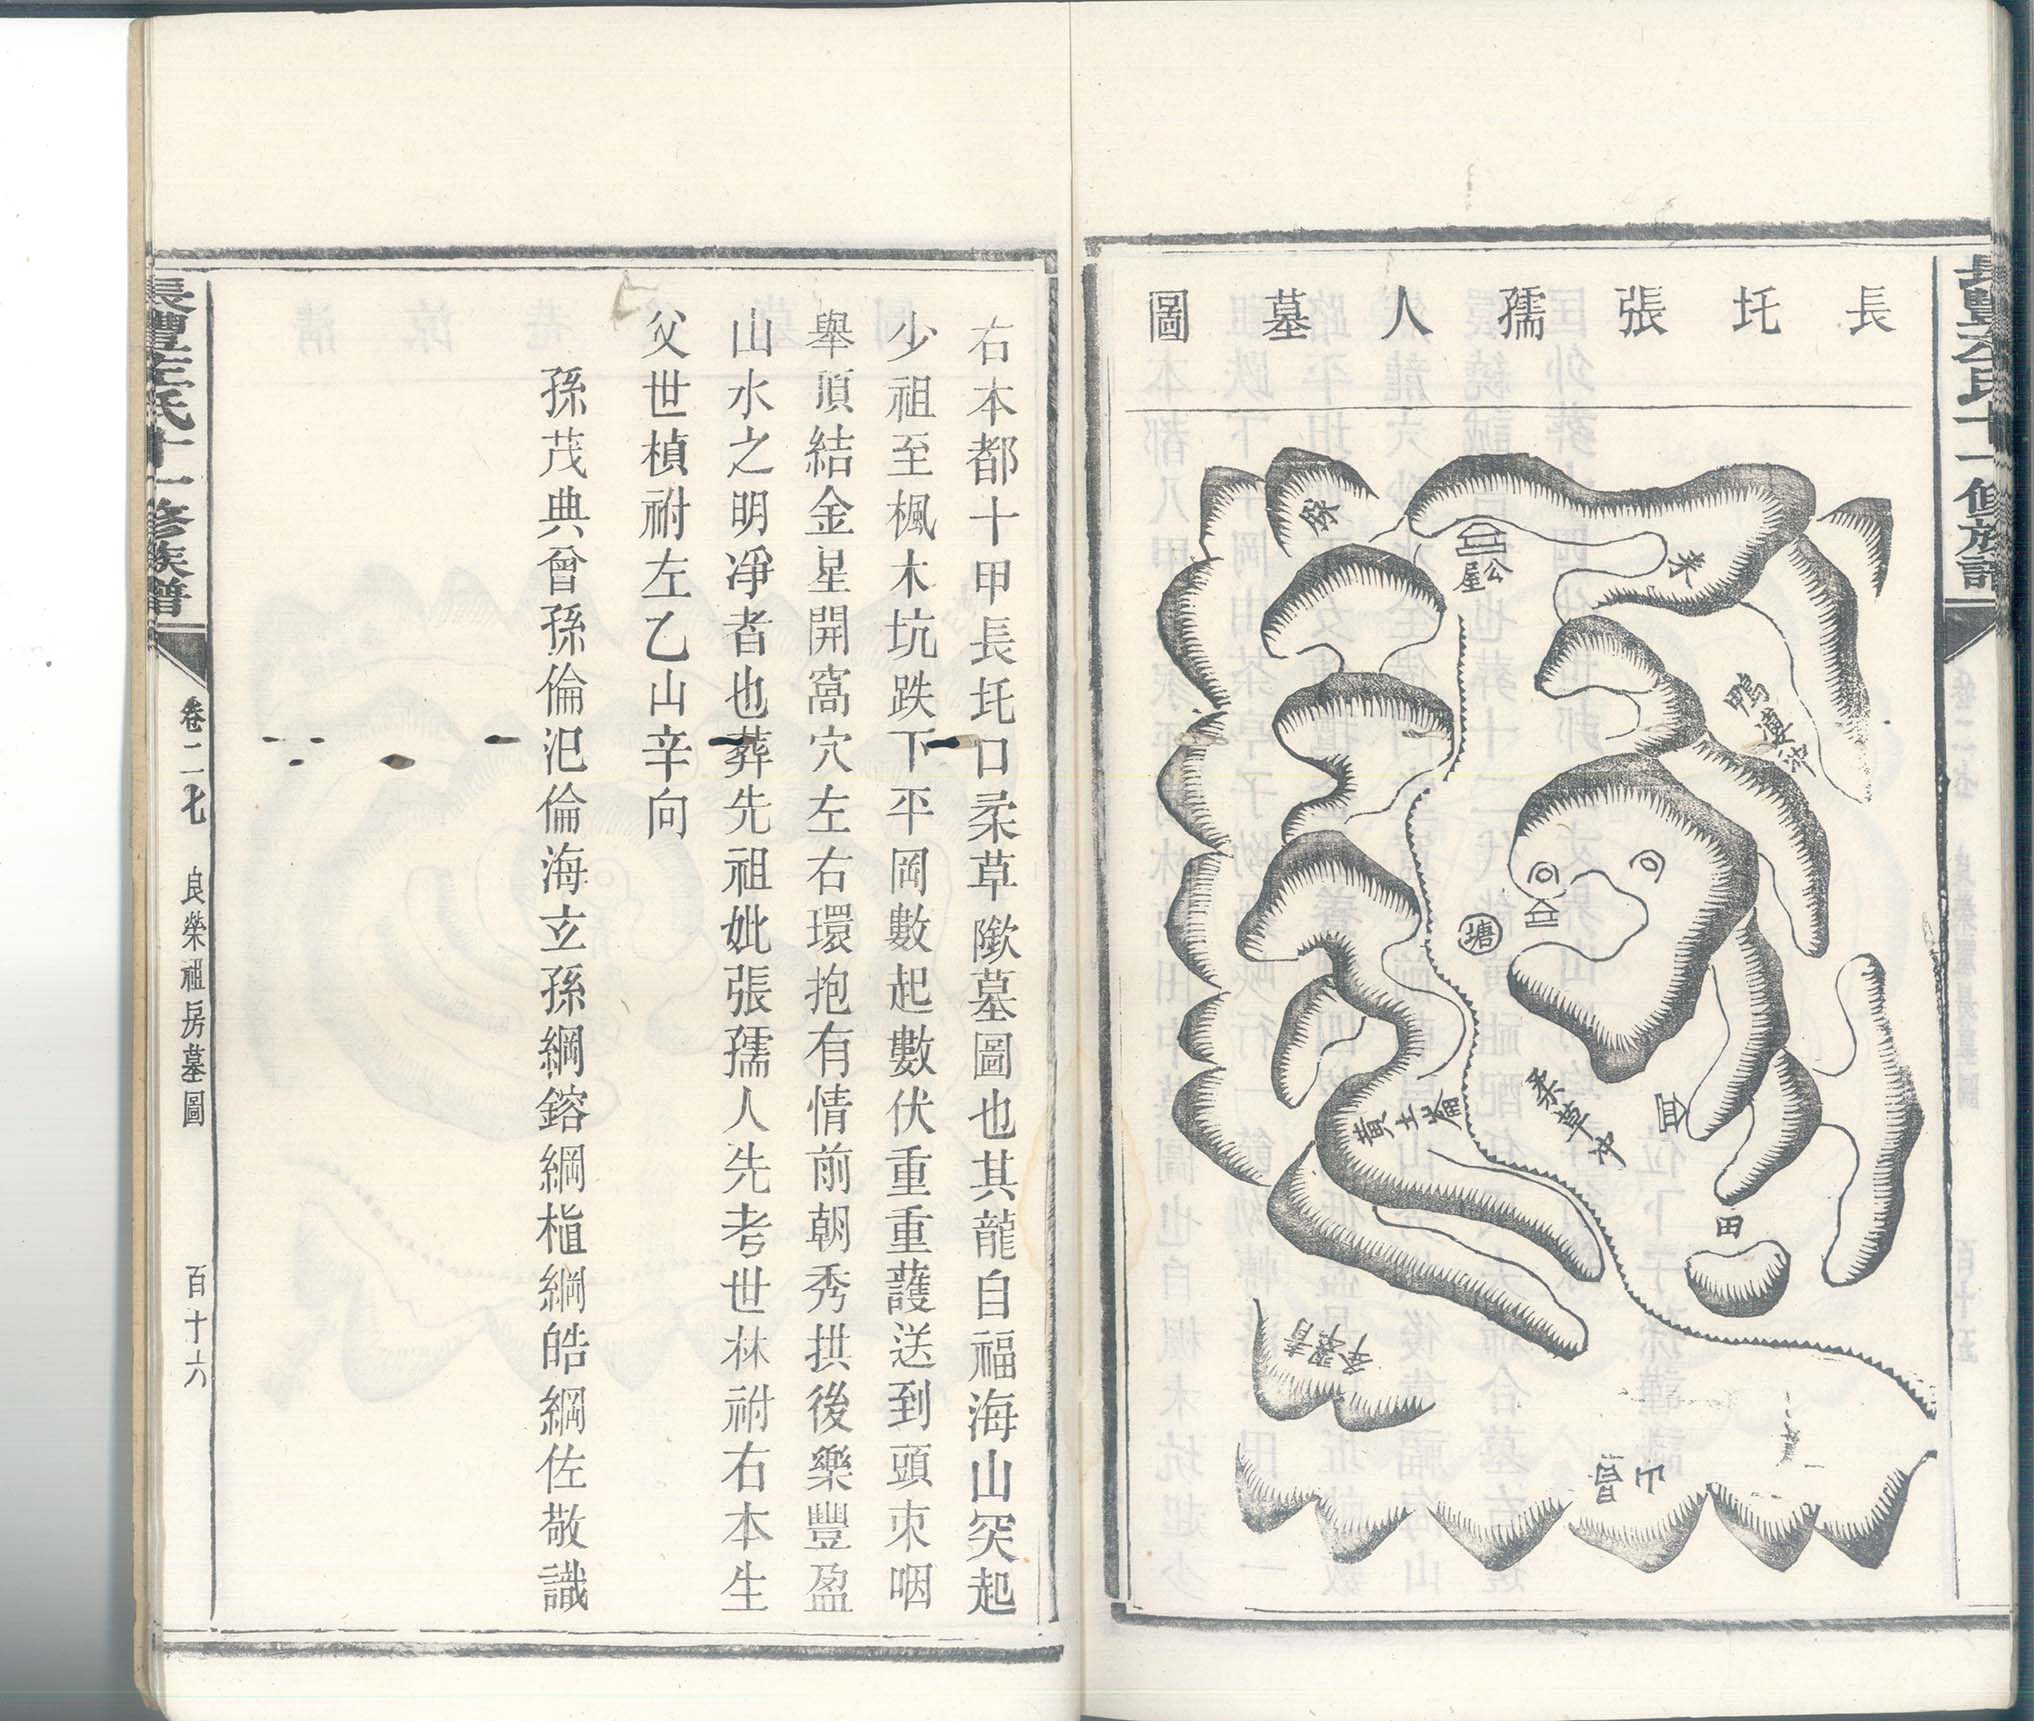 長圫張孺人墓圖
公屋
塘
柔草坳
黃土崙
田
田
右本都十甲長圫口柔草墓圖也其龍自福海山突起
少祖至楓木坑跌下平岡數起數伏重重護送到頭束咽
舉頂結金星開窩穴左右環抱有情前朝秀拱後樂豐盈
山水之明淨者也葬先祖妣張孺人先考世林祔右本生
父世楨祔左乙山辛向
孫茂典曾孫倫汜倫海玄孫綱鎔綱植綱皓綱佐敬識
十一修族譜
卷二七
良榮祖房墓圖
百十六